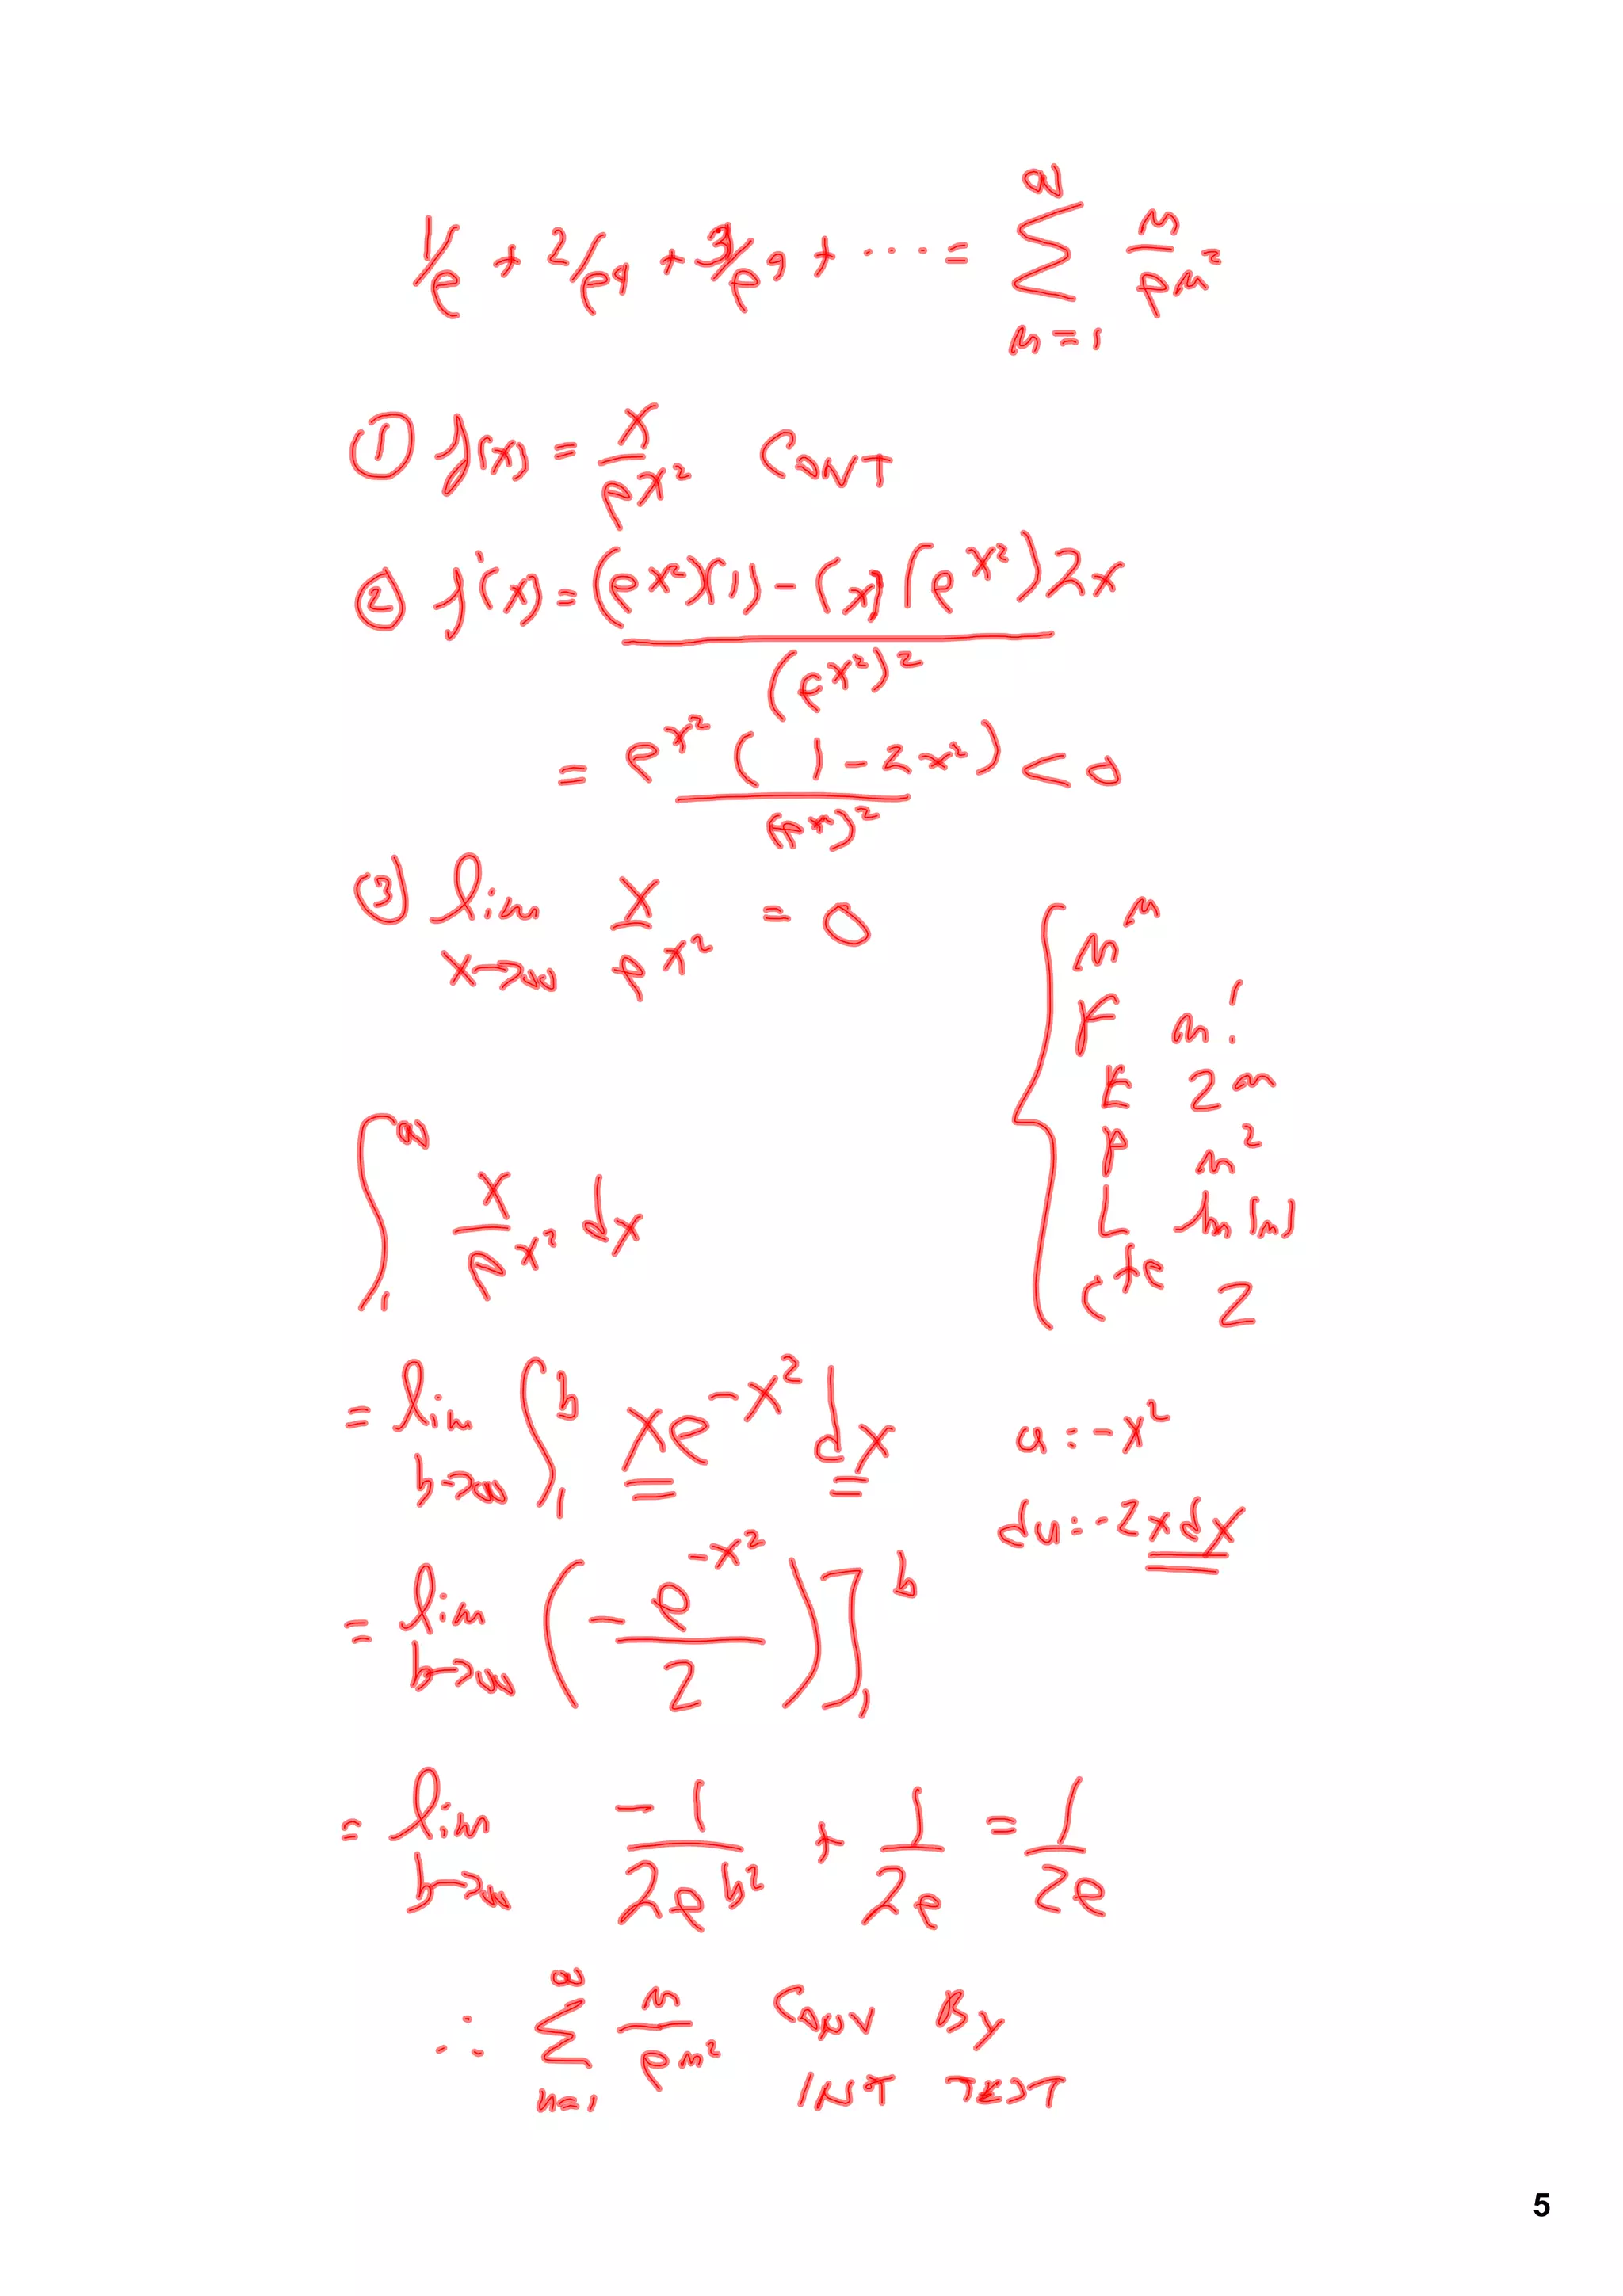 1/e + 2/e^4 + 3/e^9 + ... = ∑_{n=1}^{∞} n/e^{n^2}
① f(x) = x/e^{x^2} CONT
② f'(x) = ((e^{x^2})(1) - (x)(e^{x^2})2x)/(e^{x^2})^2
= e^{x^2}(1 - 2x^2)/(e^{x^2})^2 < 0
③ lim_{x→∞} x/e^{x^2} = 0
n^n
F n!
E 2^n
P n^2
L ln(n)
cte 2
∫_1^∞ x/e^{x^2} dx
= lim_{b→∞} ∫_1^b xe^{-x^2} dx
u = -x^2
du = -2xdx
= lim_{b→∞} (-e^{-x^2}/2)]_1^b
= lim_{b→∞} -1/(2e^{b^2}) + 1/(2e) = 1/(2e)
∴ ∑_{n=1}^{∞} n/e^{n^2} CONV By
INT TEST
5